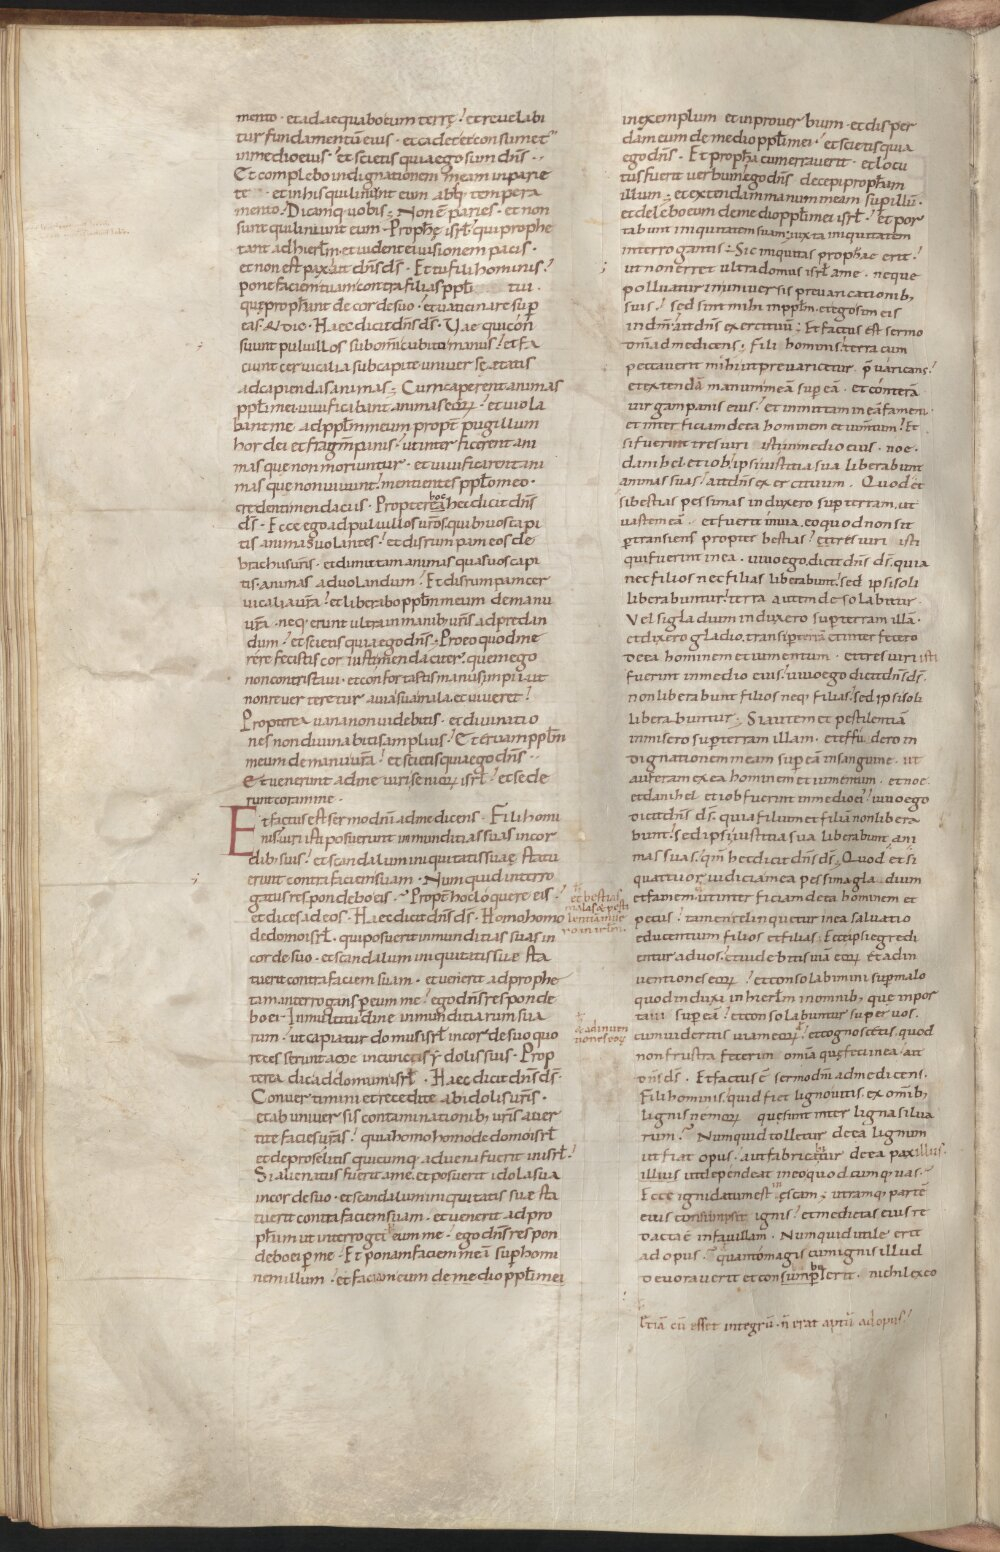 mento · et adaequabo eum terrę ! et revelabi
tur fundamentū eius · et cadet et consumet᷑
in medio eius · et scietis quia ego sum dn̄s ··
Et complebo indignationem meam in parie
te · et in his qui liniunt eum absq; tempera
mento ! Dicamq; vobis ; Non ē paries · et non
sunt qui liniunt eum · Prophę isrł qui prophe
tant ad hierłm · et vident ei visionem pacis ·
et non est pax ait dn̄s ds̄ · Et tu fili hominis !
pone faciem tuam contra filias pp̄łi tui ·
quę prophant de corde suo ! et vaticinare sup̄
eas · & dic · Haec dicit dn̄s ds̄ · Vae quę con
suunt pulvillos sub om̄i cubito manus ! et fa
ciunt cervicalia sub capite universę ętatis
ad capiendas animas ; Cum caperent animas
pp̄łi mei · vivificabant animas eoꝝ ! et viola
bant me ad pp̄łm meum propt̄ pugillum
hordei et fragm̄ panis ! ut interficerent ani
mas quę non moriuntur · et vivificarent ani
mas quę non vivunt ! mentientes pp̄ło meo ·
credenti mendaciis · Propterea hoc hec dicit dn̄s
ds̄ · Ecce ego ad pulvillos vr̄os quib; vos capi
tis animas volantes ! et disrumpam eos de
brachiis vr̄is · et dimittam animas quas vos capi
tis · animas ad volandum ! Et disrumpam cer
vicalia vr̄a ! et liberabo pp̄łm meum de manu
vr̄a · neq; erunt ultra in manib; vr̄is ad predan
dum ! et scietis quia ego dn̄s ; Pro eo quod me
rere fecistis cor iusti mendaciter · quem ego
non contristavi · et confortastis manus impii · ut
non reverteretur a via sua mala · et viveret !
Propterea vana non videbitis · et divinatio
nes non divinabitis amplius ! Et eruam pp̄łm
meum de manu vr̄a ! et scietis quia ego dn̄s ··
Et venerunt ad me viri senioꝝ isrł ! et sede
runt coram me ·
Et factus est sermo dn̄i ad me dicens · Fili homi
nis · viri isti posuerunt inmunditias suas in cor
dib; suis ! et scandalum iniquitatis suaę statu
erunt contra faciem suam · Numquid interro
gatus respondebo eis · Propt̄ hoc loquere eis !
et dices ad eos · Haec dicit dn̄s ds̄ · Homo homo
de domo isrł · qui posuerit inmunditias suas in
corde suo · et scandalum iniquitatis suæ sta
tuerit contra faciem suam · et venerit ad prophe
tam interrogans p̱ eum me ! ego dn̄s responde
bo ei · In multitudine inmunditiarum sua
rum · ut capiatur domus isrł in corde suo quo
recesserunt a me in cunctis idolis suis · Prop
terea dic ad domum isrł · Haec dicit dn̄s ds̄ ·
Convertimini et recedite ab idolis vr̄is ·
et ab universis contaminationib; vr̄is aver
tite facies vr̄as ! quia homo homo de domo isrł
et de proselitis quicumq; advena fuerit in isrł !
Si alienatus fuerit a me · et posuerit idola sua
in corde suo · et scandalum iniquitatis suæ sta
tuerit contra faciem suam · et venerit ad pro
ph̄am ut interroget p̱ eum me ! ego dn̄s respon
debo ei p̱ me · Et ponam faciem meā sup̱ homi
nem illum ! et faciam eum de medio pp̄łi mei
in exemplum et in proverbium · et disper
dam eum de medio pp̄łi mei ! et scietis quia
ego dn̄s · Et proph̄a cum erraverit · et locu
tus fuerit verbum · ego dn̄s decepi proph̄am
illum ; et extendam manum meam sup̱ illū ·
et delebo eum de medio pp̄łi mei isrł ! Et por
tabunt iniquitatem suam · iuxta iniquitatem
interrogantis ; Sic iniquitas proph̄ae erit !
ut non erret ultra domus isrł a me · neque
polluatur in universis prevaricationib;
suis ! sed sint mihi in pp̄łm · et ego sim eis
in dm̄ ait dn̄s exercituū ; Et factus est sermo
dn̄i ad me dicens ; Fili hominis · terra cum
peccaverit mihi ut prevaricetur p̄varicans !
et extendā manum meā sup̱ eā · et conterā
virgam panis eius ! et inmittam in eā famem ·
et interficiam de ea hominem et iumentum ! Et
si fuerint tres viri isti in medio eius · noe ·
danihel · et iob ! ipsi iustitia sua liberabunt
animas suas ! ait dn̄s exercituum · Quod et
si bestias pessimas induxero sup̱ terram · ut
vastem eā · et fuerit invia · eo quod non sit
p̱transiens propter bestias ! et tres viri isti
qui fuerint in ea · vivo ego dicit dn̄s ds̄ · quia
nec filios nec filias liberabunt ! sed ipsi soli
liberabuntur ! terra autem desolabitur ·
Vel si gladium induxero sup̱ terram illā ·
et dixero gladio · transi p̱ terrā et interfecero
de ea hominem et iumentum · et tres viri isti
fuerint in medio eius · vivo ego dicit dn̄s ds̄ ·
non liberabunt filios neq; filias ! sed ipsi soli
liberabuntur ; Si autem et pestilentiā
inmisero sup̱ terram illam · et effudero in
dignationem meam sup̱ eā in sanguine · ut
auferam ex ea hominem et iumentum · et noe
et danihel et iob fuerint in medio ei᷒ ! vivo ego
dicit dn̄s ds̄ · quia filium et filiā non libera
bunt ! sed ipsi iustitia sua liberabunt ani
mas suas ! qm̄ hec dicit dn̄s ds̄ ; Quod et si
quattuor iudicia mea pessima gladium
et famem · ut interficiam de ea hominem et
pecus ! tamen relinquetur in ea salvatio
educentium filios et filias · Ecce ipsi egredi
entur ad vos ! et videbitis viā eoꝝ et adin
ventiones eoꝝ ! et consolabimini sup̱ malo
quod induxi in hierłm in omnib; quę inpor
tavi sup̱ eā ! et consolabuntur super vos ·
cum videritis viam eoꝝ ! et cognoscetis · quod
non frustra fecerim omīa quę feci in ea · ait
dn̄s ds̄ · Et factus ē sermo dn̄i ad me dicens ·
Fili hominis ! quid fiet ligno vitis · ex omib;
lignis nemoꝝ quę sunt inter ligna silva
rum ? Numquid tolletur de ea lignum
ut fiat opus · aut fabricabitur de ea paxillus ·
illius ut dependeat in eo quodcumq; vas ?
Ecce igni datum est in escam ; utramq; partē
eius consumpsit ignis ! et medietas eius re
dacta ē in favillam · Numquid utile erit
ad opus · quanto magis cum ignis illud
devoraverit et consumpserit · nichil ex eo
et bestias
malas & pesti
lentiā misero
in irłm ·
& adinven
tiones eoꝝ
Etiā cū esset integrū · n̄ erat aptū ad opus !